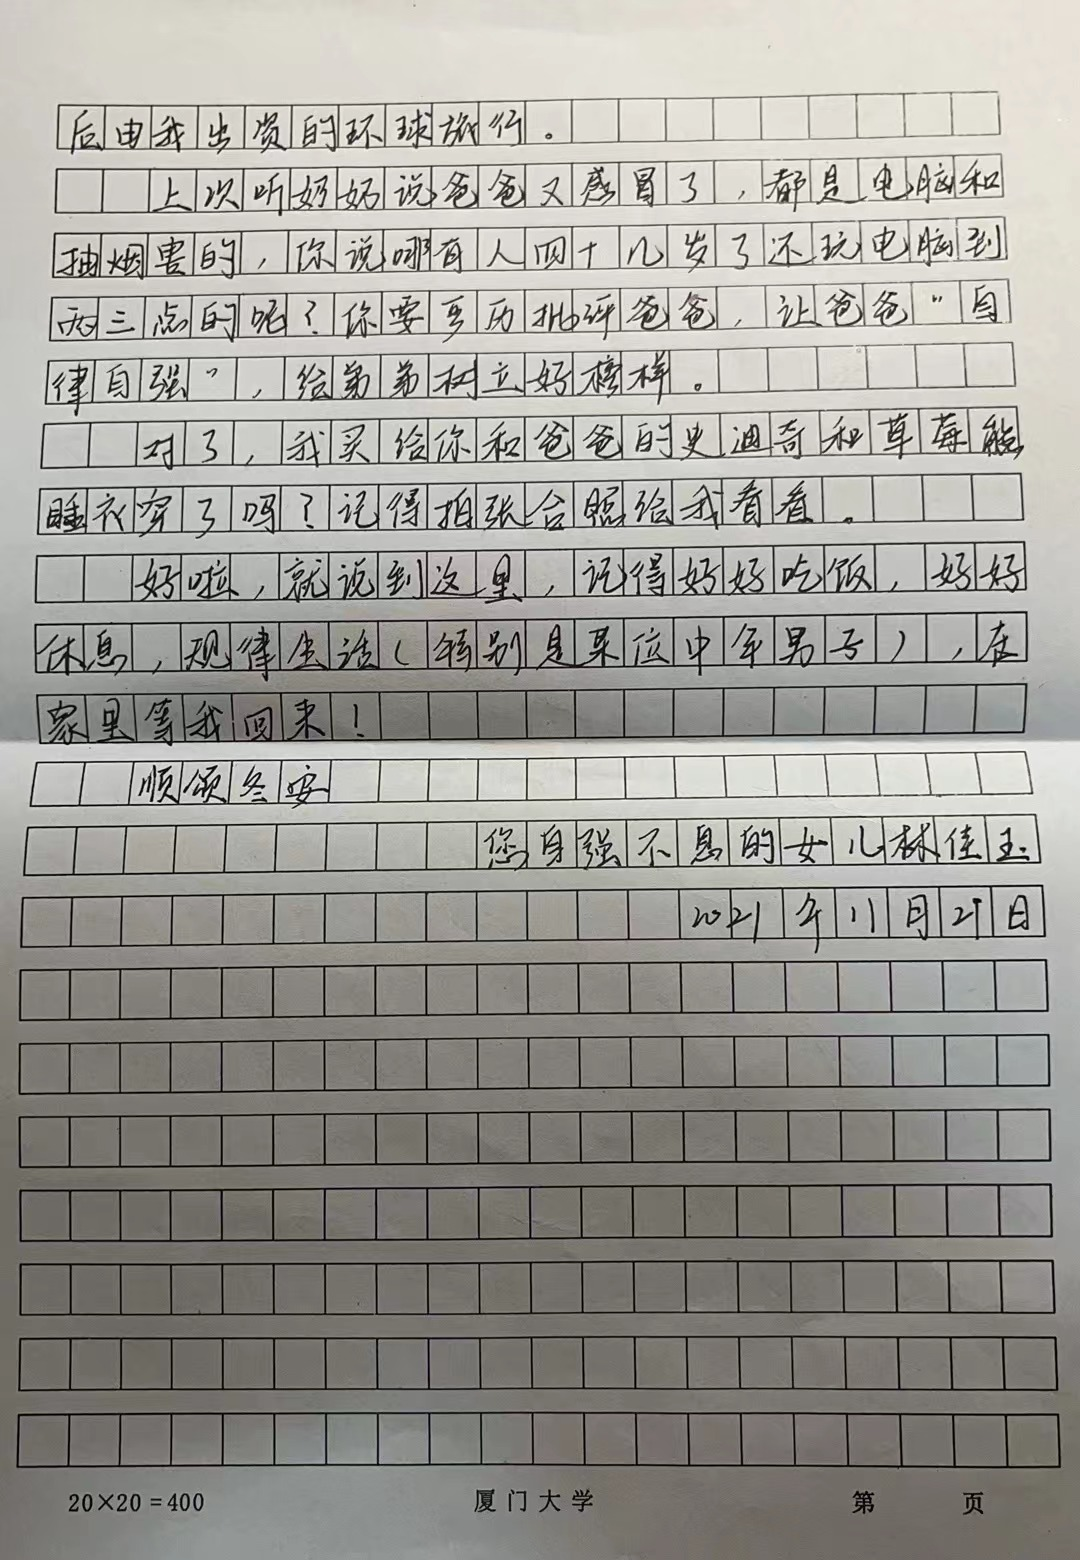 后由我出资的环球旅行。
上次听奶奶说爸爸又感冒了,都是电脑和
抽烟害的,你说哪有人四十几岁了还玩电脑到
两三点的呢?你要严厉批评爸爸,让爸爸“自
律自强”,给弟弟树立好榜样。
对了,我买给你和爸爸的史迪奇和草莓熊
睡衣穿了吗?记得拍张合照给我看看。
好啦,就说到这里,记得好好吃饭,好好
休息,规律生活(特别是某位中年男子),在
家里等我回来!
顺颂冬安
您自强不息的女儿林佳玉
2021年11月29日
20×20=400 厦门大学 第 页